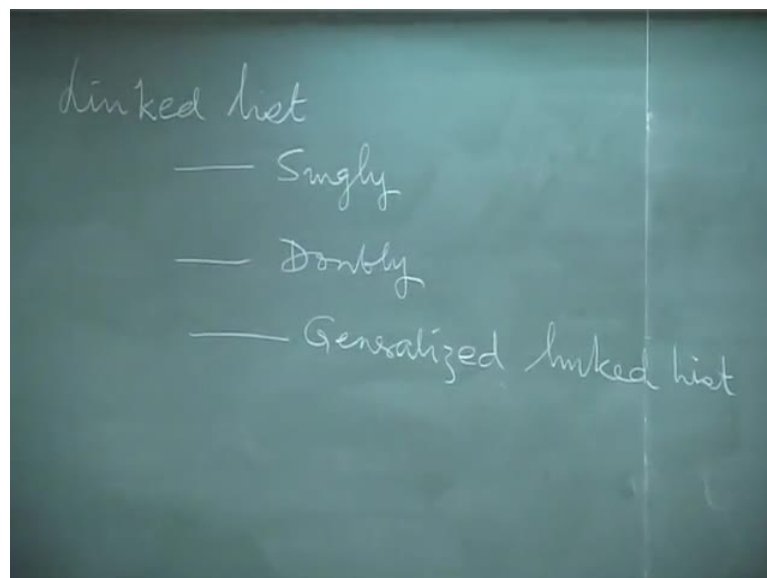 Linked list
— Singly
— Doubly
— Generalized linked list